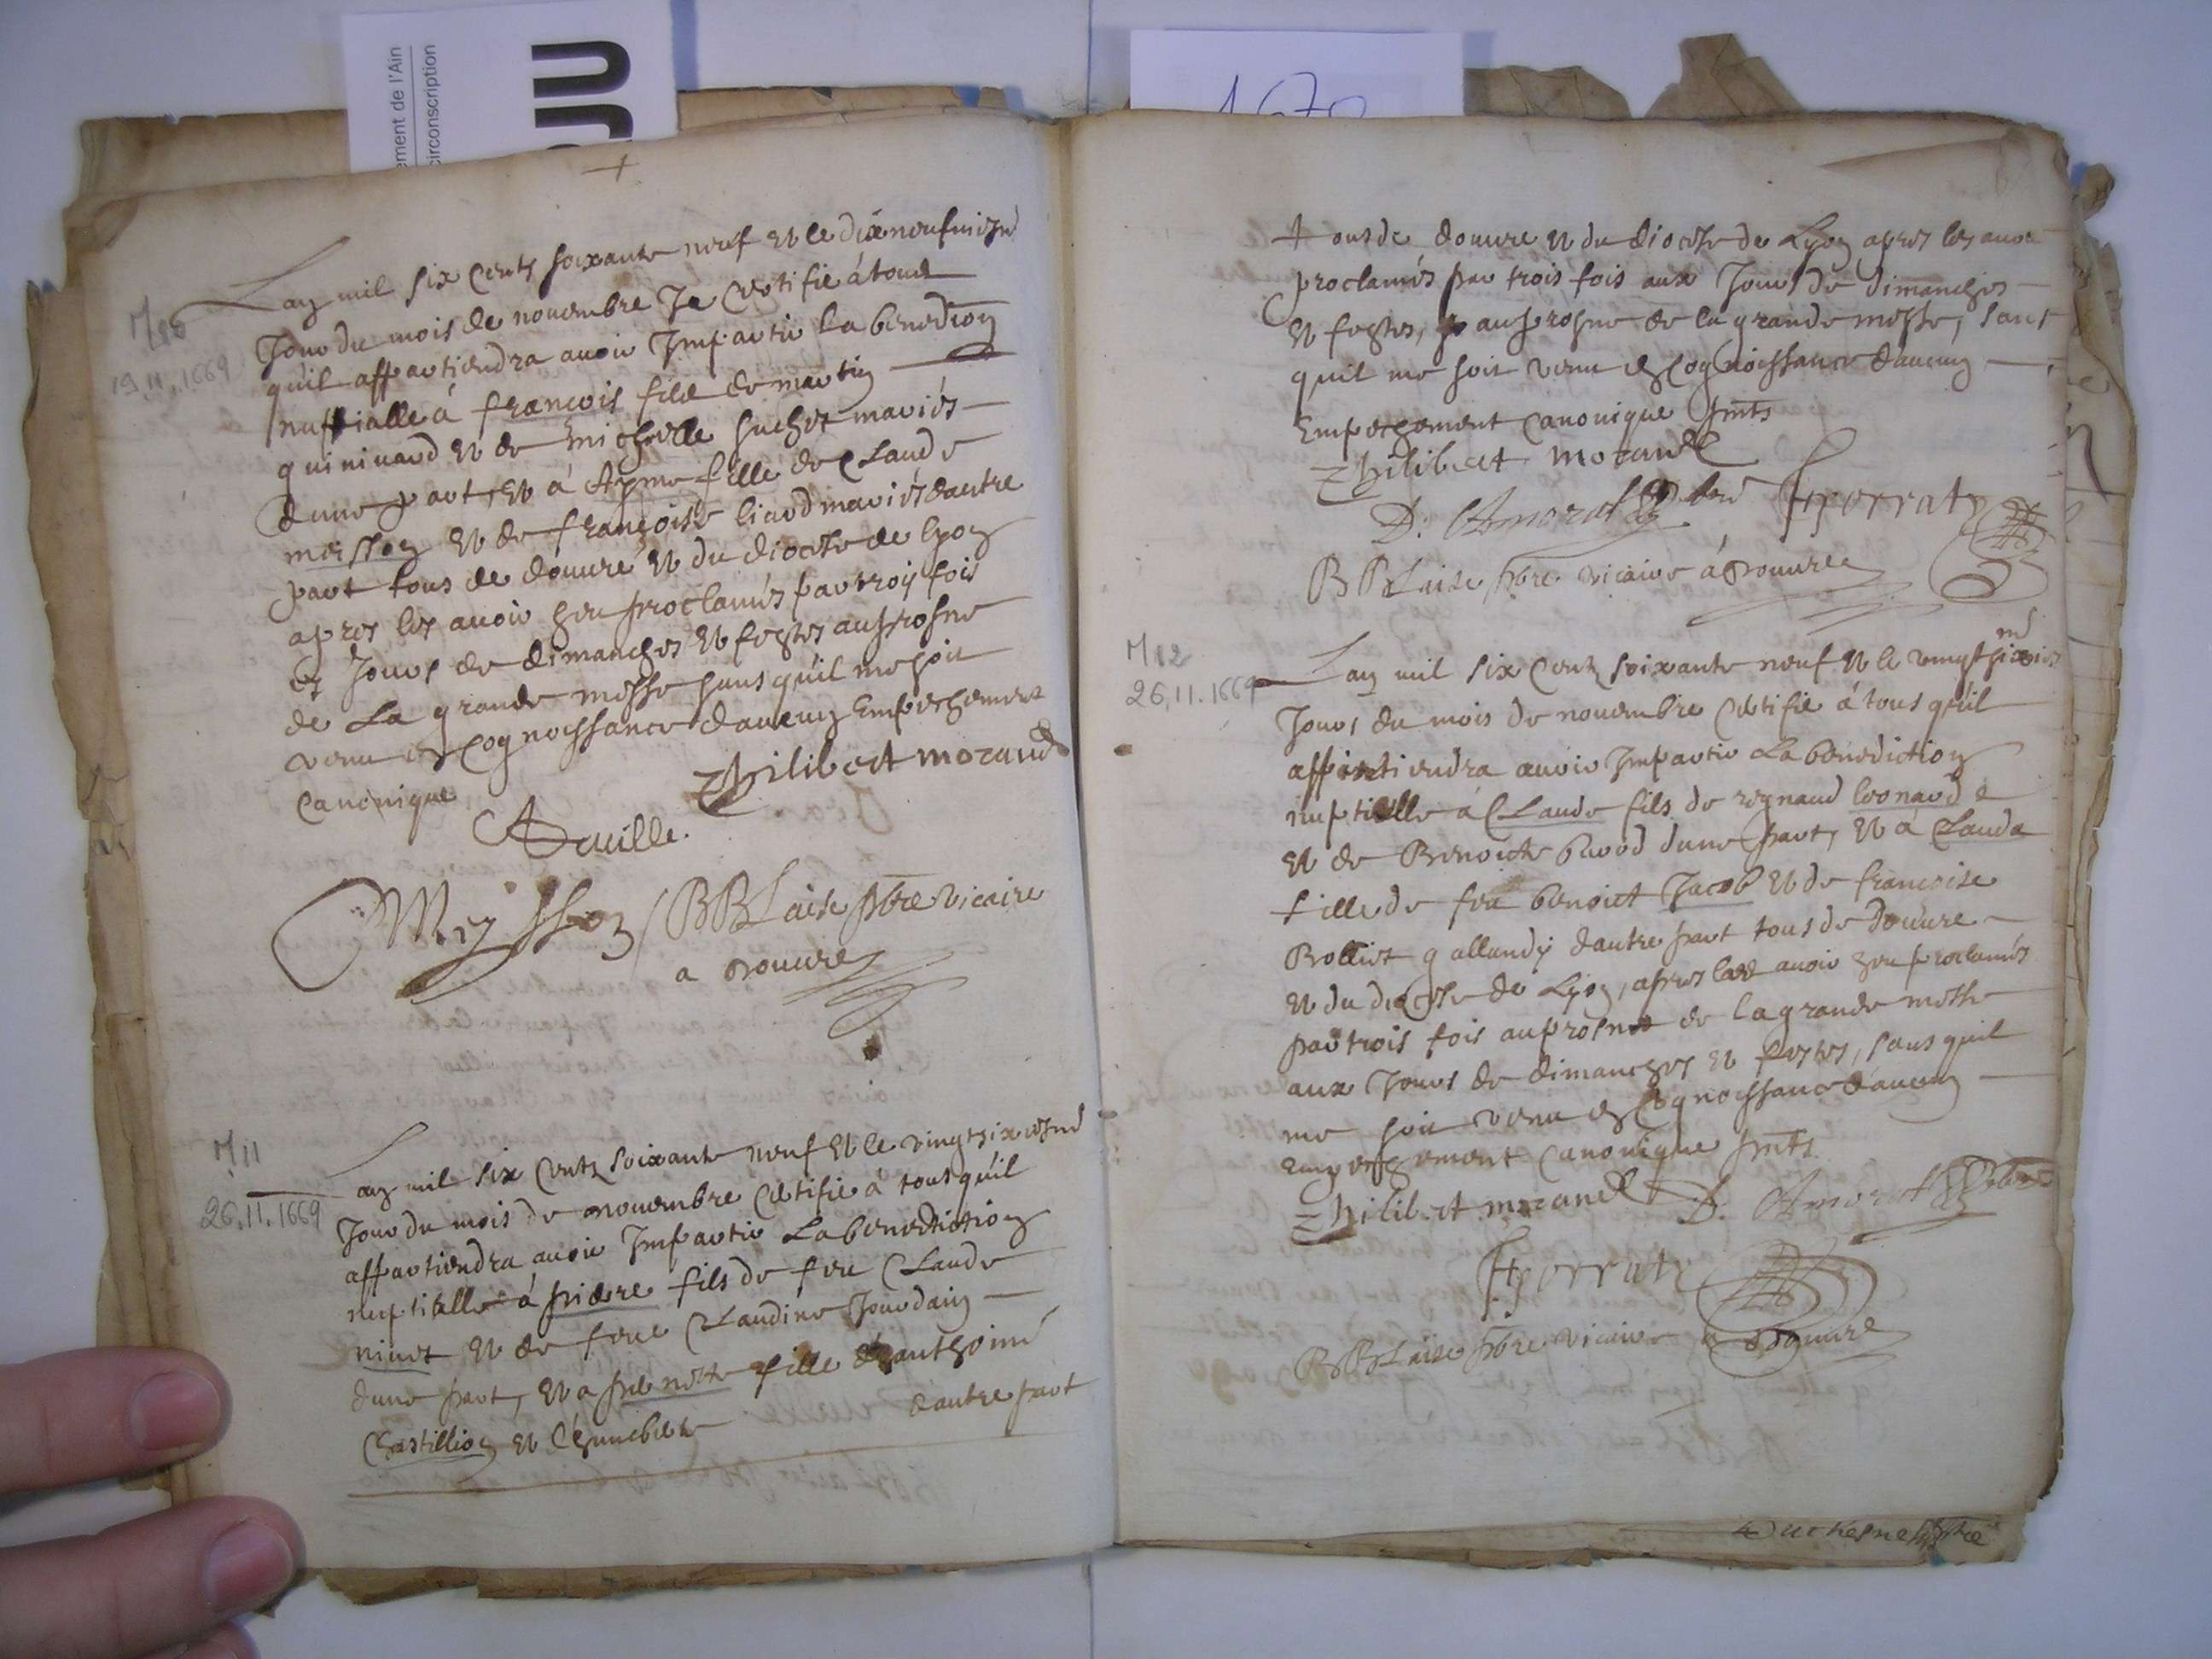 ement de l'Ain
circonscription
JU
1670
M10
19.11.1669
Lan mil six cents soixante neuf et le dixneufuiesme
Jour du mois de nouembre Je Certifie à tous
quil appartiendra auoir Imparti la benedicon
nuptialle à françois fils de martin
quiniuard et de michelle suchet mariés
dune part, et à Ayme fille de Claude
meisson et de françoise liard mariés dautre
part tous de douure et du diocese de lyon
apres les auoir heu proclamés par troys fois
es Jours de dimanches et festes au prosne
de La grande messe sans quil me soit
venu en cognoissance daucun Empechement
canonique
Philibert morand
Meysson
BBLaise pbre vicaire
a douure
M11
26.11.1669
Lan mil six cents soixante neuf et le vingtsixiesme
Jour du mois de nouembre Certifie à tous quil
appartiendra auoir Impartir La benediction
nuptialle à pierre fils de feu Claude
niuet et de feue Claudine Jourdain
dune part, et a pernette fille danthoine
Chastillion et
dautre part
tous de douure et du diocese de Lyon apres les auoir
proclamés par trois fois aux Jours de dimanches
et festes, au prosne de la grande messe, sans
quil me soit venu en cognoissance daucun
Empechement canonique pnts
Philibert morand
D. Amorat Pbre
Hporraty
BBLaise pbre vicaire à douure
M12
26.11.1669
Lan mil six cents soixante neuf et le vingt sixiesme
Jours du mois de nouembre Certifie à tous quil
appartiendra auoir Impartir La benediction
nuptialle à Claude fils de regnaud leonard
et de Benoicte dune part, et à Clauda
fille de feu benoict Jacob et de françoise
Bolliet gallandy dautre part tous de douure
et du diocese de Lyon, apres les auoir heu proclamés
par trois fois au prosne de la grande messe
aux Jours de dimanches et festes, sans quil
me soit venu en cognoissance daucun
empeschement canonique pnts
Philibert morand D. Amorat Pbre
Hporraty
BBLaise pbre vicaire a douure
Duchesne